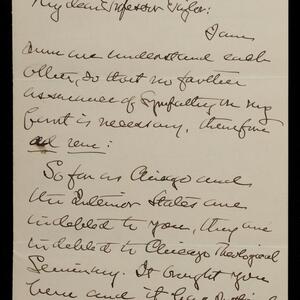 My dear Professor Taylor:
I am
sure we understand each
other, so that no further
assurance of sympathy in my
part is necessary, therefore
ad rem:
So far as Chicago and
the Interior States are
indebted to you, they are
indebted to Chicago Theological
Seminary. It brought you
here and it has